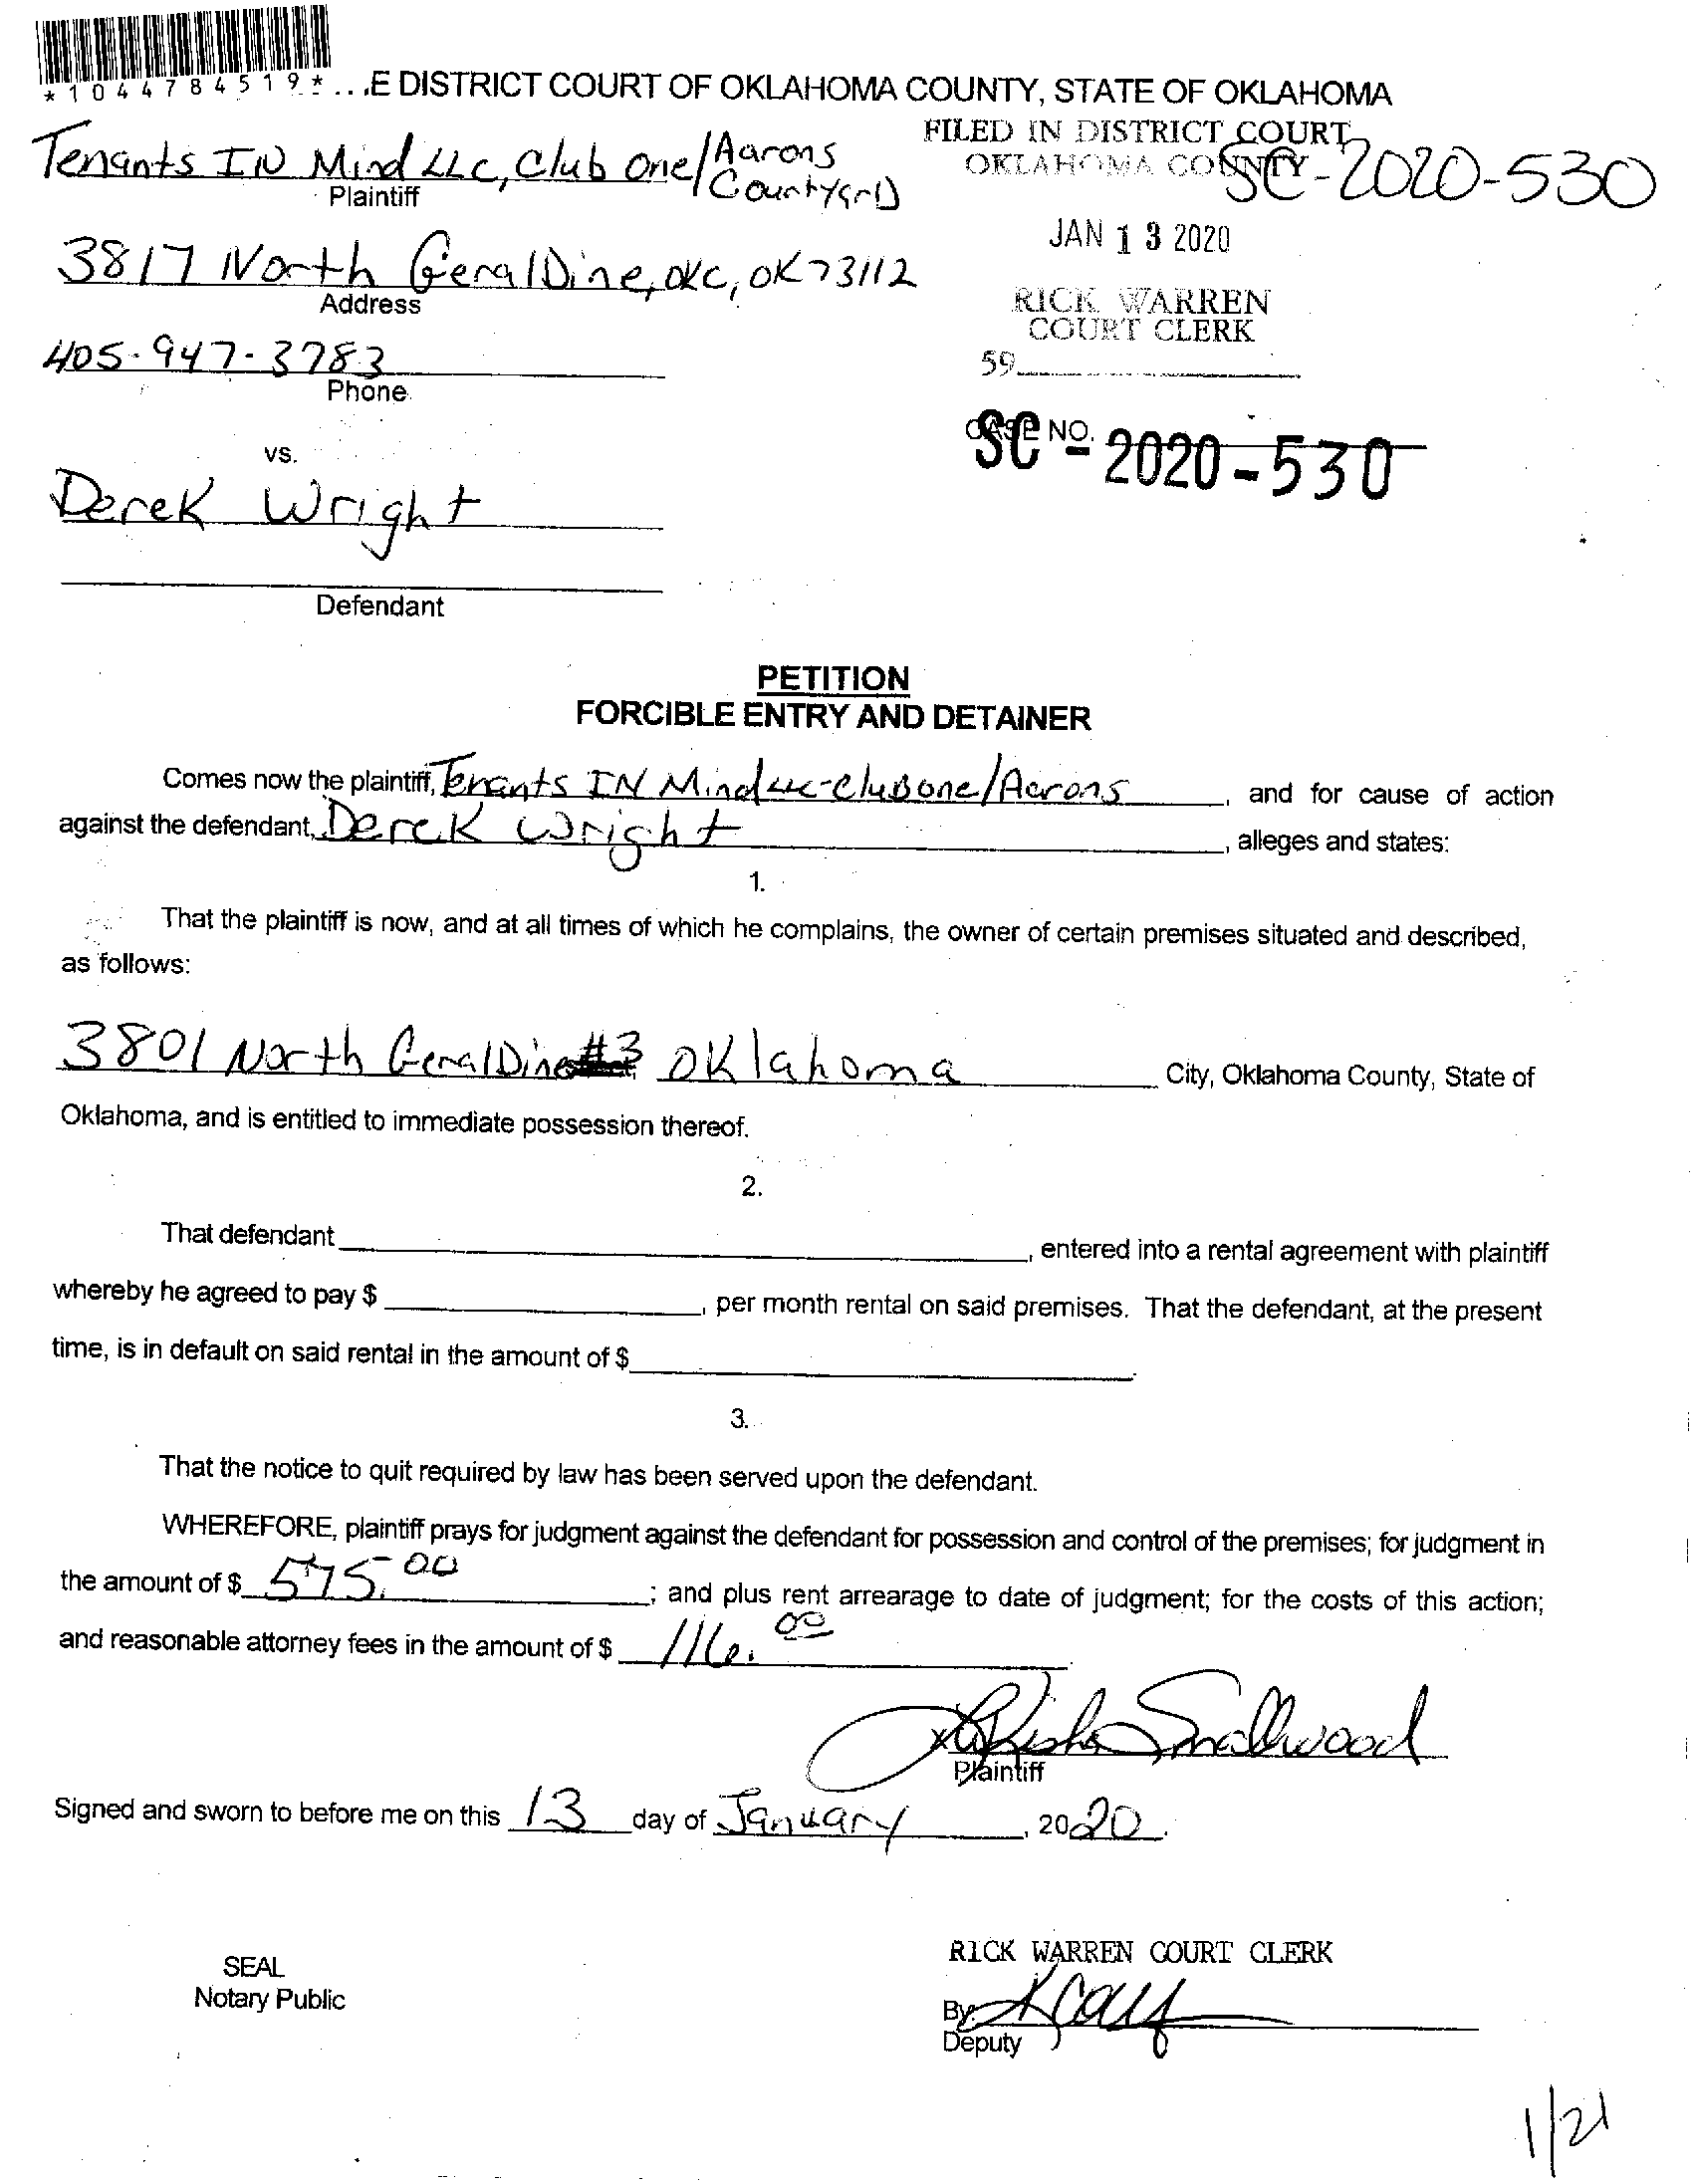 *1044784519*...E DISTRICT COURT OF OKLAHOMA COUNTY, STATE OF OKLAHOMA
FILED IN DISTRICT COURT
OKLAHOMA COUNTY
SC-2020-530
Tenants IN Mind LLC, Club One/Aarons
Plaintiff
JAN 13 2020
3817 North GeralDine, OKC, OK 73112
Address
RICK WARREN
COURT CLERK
405-947-3783
Phone
59
CASE NO.
SC-2020-530
vs.
Derek Wright
Defendant
PETITION
FORCIBLE ENTRY AND DETAINER
Comes now the plaintiff, Tenants IN Mind LLC-Clubone/Aarons, and for cause of action
against the defendant, Derek Wright, alleges and states:
1.
That the plaintiff is now, and at all times of which he complains, the owner of certain premises situated and described,
as follows:
3801 North GeralDine #3 Oklahoma City, Oklahoma County, State of
Oklahoma, and is entitled to immediate possession thereof.
2.
That defendant , entered into a rental agreement with plaintiff
whereby he agreed to pay $ , per month rental on said premises. That the defendant, at the present
time, is in default on said rental in the amount of $ .
3.
That the notice to quit required by law has been served upon the defendant.
WHEREFORE, plaintiff prays for judgment against the defendant for possession and control of the premises; for judgment in
the amount of $ 575.00 ; and plus rent arrearage to date of judgment; for the costs of this action;
and reasonable attorney fees in the amount of $ 116.00
LaKisha Smallwood
Plaintiff
Signed and sworn to before me on this 13 day of January, 2020.
RICK WARREN COURT CLERK
SEAL
Notary Public
By:
Deputy
1/21